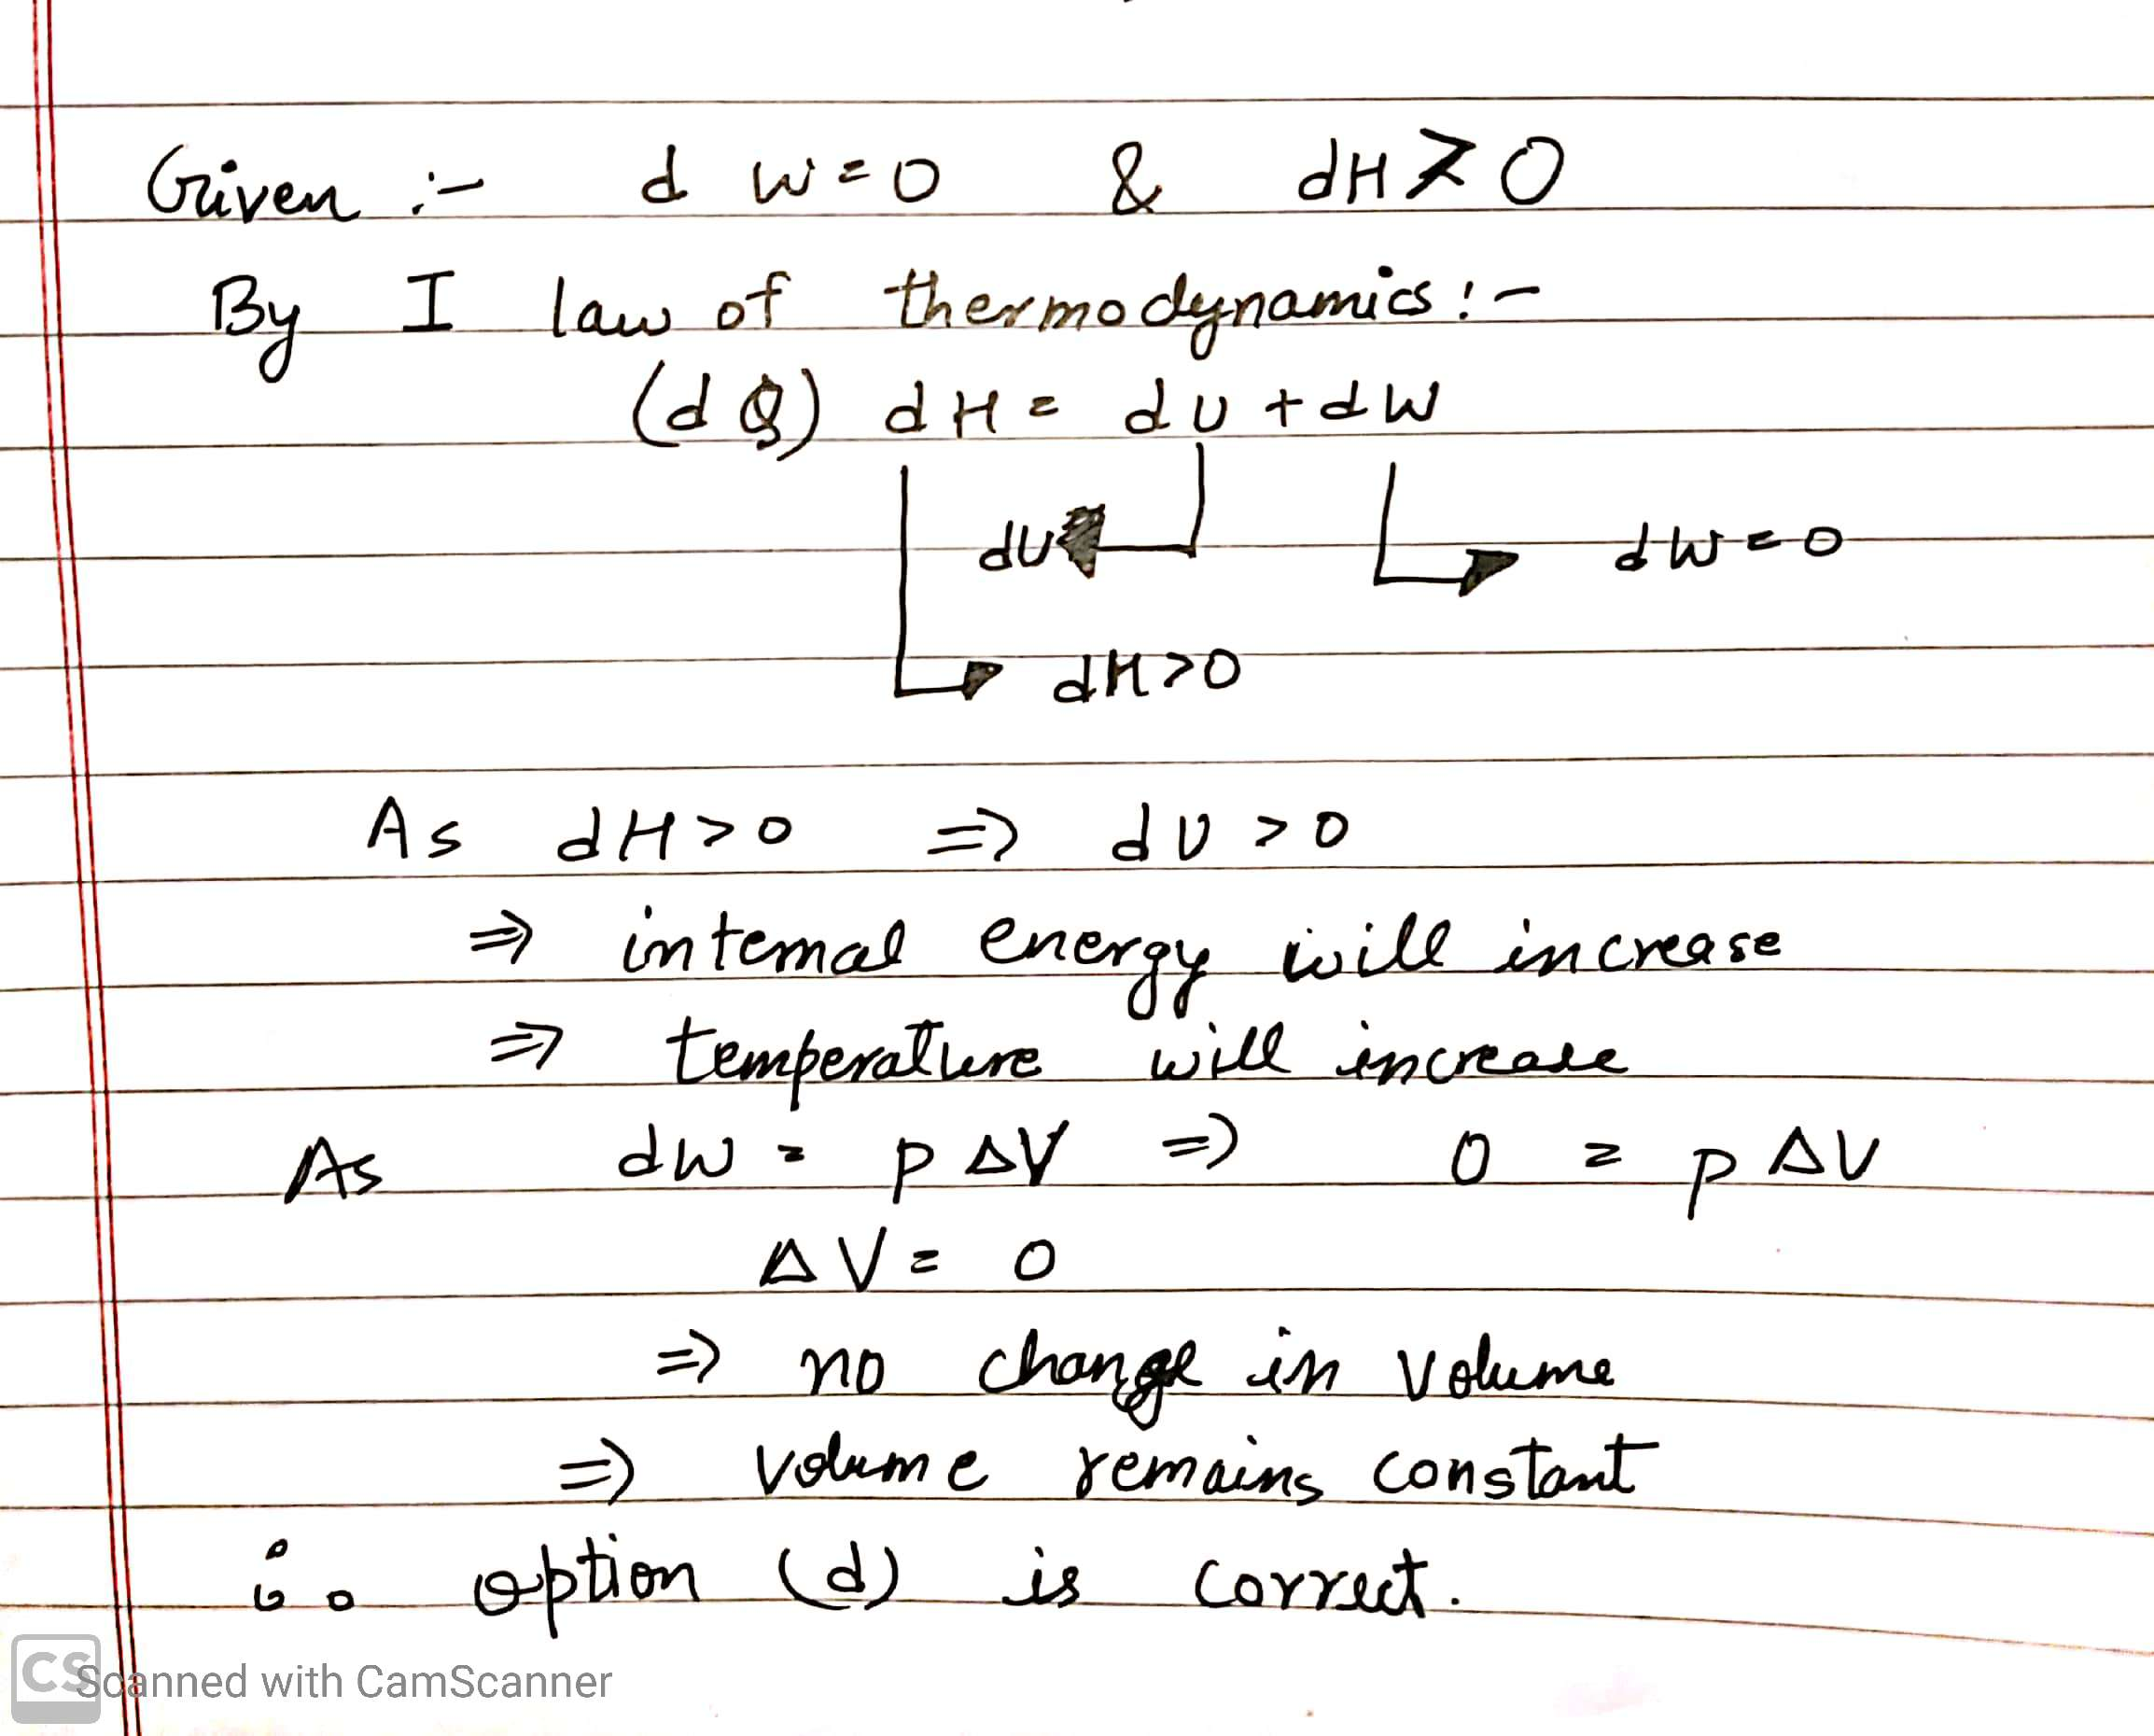 Given :- d W = 0 & dH > 0
By I law of thermodynamics :-
(dQ) dH = dU + dW
dU dW = 0
dH > 0
As dH > 0 => dU > 0
=> internal energy will increase
=> temperature will increase
As dW = P ΔV => 0 = P ΔV
ΔV = 0
=> no change in volume
=> volume remains constant
∴ option (d) is correct.
CS Scanned with CamScanner